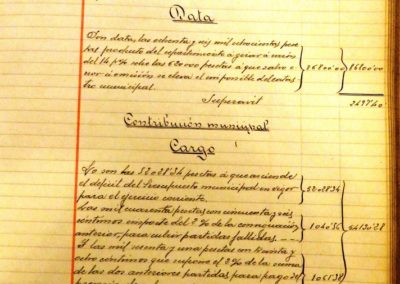 Data
Son data, las ochenta y seis mil ochocientas pese
tas producto del repartimiento á girar á razon
del 14 p% sobre las 620000 pesetas á que salvo e
rror ú omisión se eleva el imponible del catas
tro municipal. 86800'00 86800'00
Superavit 2497'40
Contribución municipal
Cargo
Lo son las 52028'34 pesetas á que asciende
el déficit del Presupuesto municipal en vigor
para el ejercicio corriente. 52028'34
Las mil cuarenta pesetas con cincuenta y seis
céntimos importe del 2% de la consignación
anterior, para cubrir partidas fallidas. 1040'56
Y las mil sesenta y una pesetas con treinta y
ocho céntimos que supone el 2% de la suma
de las dos anteriores partidas, para pago de
1061'38